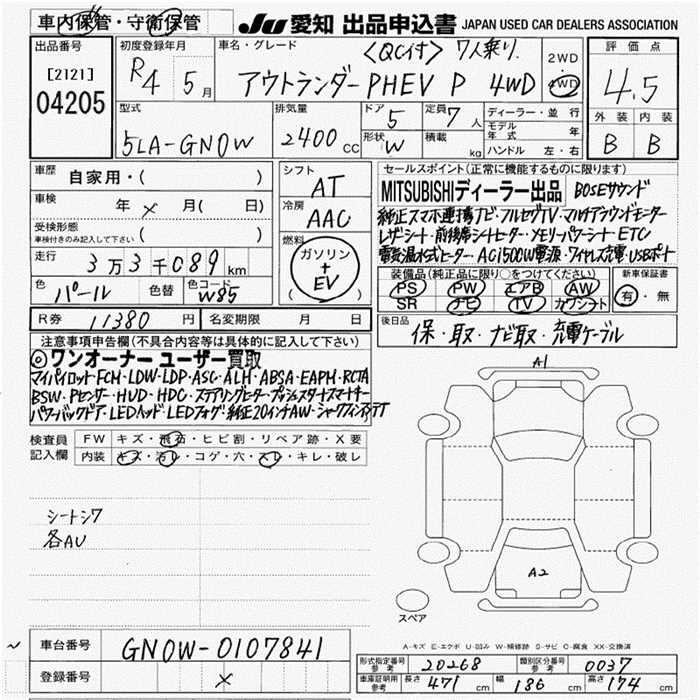 車内保管・守衛保管 JU 愛知 出品申込書 JAPAN USED CAR DEALERS ASSOCIATION
出品番号
[2121]
04205
初度登録年月
R4 5月
車名・グレード
〈QC付〉 7人乗り
アウトランダーPHEV P 4WD
2WD
4WD
評価点
4.5
外装 内装
B B
型式
5LA-GN0W
排気量
2400 CC
ドア 5
形状 W
定員 7人
積載 kg
ディーラー・並行
モデル年式 年
ハンドル 左・右
車歴 自家用・( )
車検 年 × 月( 日)
受検形態
車検付きのみ記入して下さい ( )
走行 3万3千089km
色 パール 色替 色コード W85
シフト AT
冷房 AAC
燃料
ガソリン
+
EV
( )
セールスポイント(正常に機能するものに限ります)
MITSUBISHIディーラー出品 BOSEサウンド
純正スマホ連携ナビ・フルセグTV・マルチアラウンドモニター
レザーシート・前後席シートヒーター・メモリーパワーシート・ETC
電気温水式ヒーター・AC1500W電源・ワイヤレス充電・USBポート
装備品(純正品に限り○をつけてください)
PS PW エアB AW
SR ナビ TV カワシート
新車保証書
有・無
R券 11380 円 名変期限 月 日
後日品 保・取・ナビ取・充電ケーブル
注意事項申告欄(不具合内容等は具体的に記入して下さい)
◎ワンオーナー ユーザー買取
マイパイロット・FCM・LDW・LDP・ASC・ALH・ABSA・EAPM・RCTA
BSW・Pセンサー・HUD・HDC・ステアリングヒーター・プッシュスタートスマートキー
パワーバックドア・LEDヘッド・LEDフォグ・純正20インチAW・シャークフィンアンテナ
検査員記入欄
FW キズ・飛石・ヒビ割・リペア跡・X要
内装 キズ・汚レ・コゲ・穴・スレ・キレ・破レ
シートシワ
各AU
A1
A2
スペア
A-キズ E-エクボ U-凹み W-補修跡 S-サビ C-腐食 XX-交換済
車台番号 GN0W-0107841
登録番号 ×
形式指定番号 参考 20268 類別区分番号 参考 0037
車庫証明用 参考 長さ 471 cm 幅 186 cm 高さ 174 cm